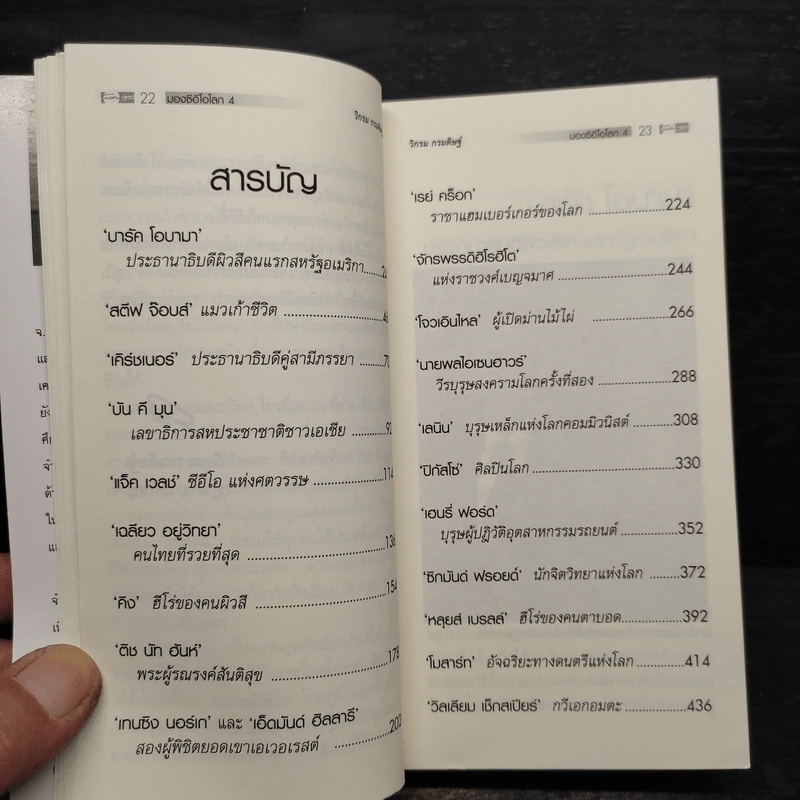 22 มองซีอีโอโลก 4
วิกรม กรมดิษฐ์
สารบัญ
'บารัค โอบามา'
ประธานาธิบดีผิวสีคนแรกสหรัฐอเมริกา
'สตีฟ จ๊อบส์' แมวเก้าชีวิต
'เคิร์ชเนอร์' ประธานาธิบดีคู่สามีภรรยา
'บัน คี มุน'
เลขาธิการสหประชาชาติชาวเอเชีย
'แจ็ค เวลช์' ซีอีโอ แห่งศตวรรษ ........114
'เฉลียว อยู่วิทยา'
คนไทยที่รวยที่สุด ........136
'คิง' ฮีโร่ของคนผิวสี ........154
'ติช นัท ฮันห์'
พระผู้รณรงค์สันติสุข ........178
'เทนซิง นอร์เก' และ 'เอ็ดมันด์ ฮิลลารี'
สองผู้พิชิตยอดเขาเอเวอเรสต์ ........202
วิกรม กรมดิษฐ์
มองซีอีโอโลก 4 23
'เรย์ คร็อก'
ราชาแฮมเบอร์เกอร์ของโลก ........224
'จักรพรรดิฮิโรฮิโต'
แห่งราชวงศ์เบญจมาศ ........244
'โจวเอินไหล' ผู้เปิดม่านไม้ไผ่ ........266
'นายพลไอเซนฮาวร์'
วีรบุรุษสงครามโลกครั้งที่สอง ........288
'เลนิน' บุรุษเหล็กแห่งโลกคอมมิวนิสต์ ........308
'ปิกัสโซ' ศิลปินโลก ........330
'เฮนรี่ ฟอร์ด'
บุรุษผู้ปฏิวัติอุตสาหกรรมรถยนต์ ........352
'ซิกมันด์ ฟรอยด์' นักจิตวิทยาแห่งโลก ........372
'หลุยส์ เบรลล์' ฮีโร่ของคนตาบอด ........392
'โมสาร์ท' อัจฉริยะทางดนตรีแห่งโลก ........414
'วิลเลียม เช็กสเปียร์' กวีเอกอมตะ ........436